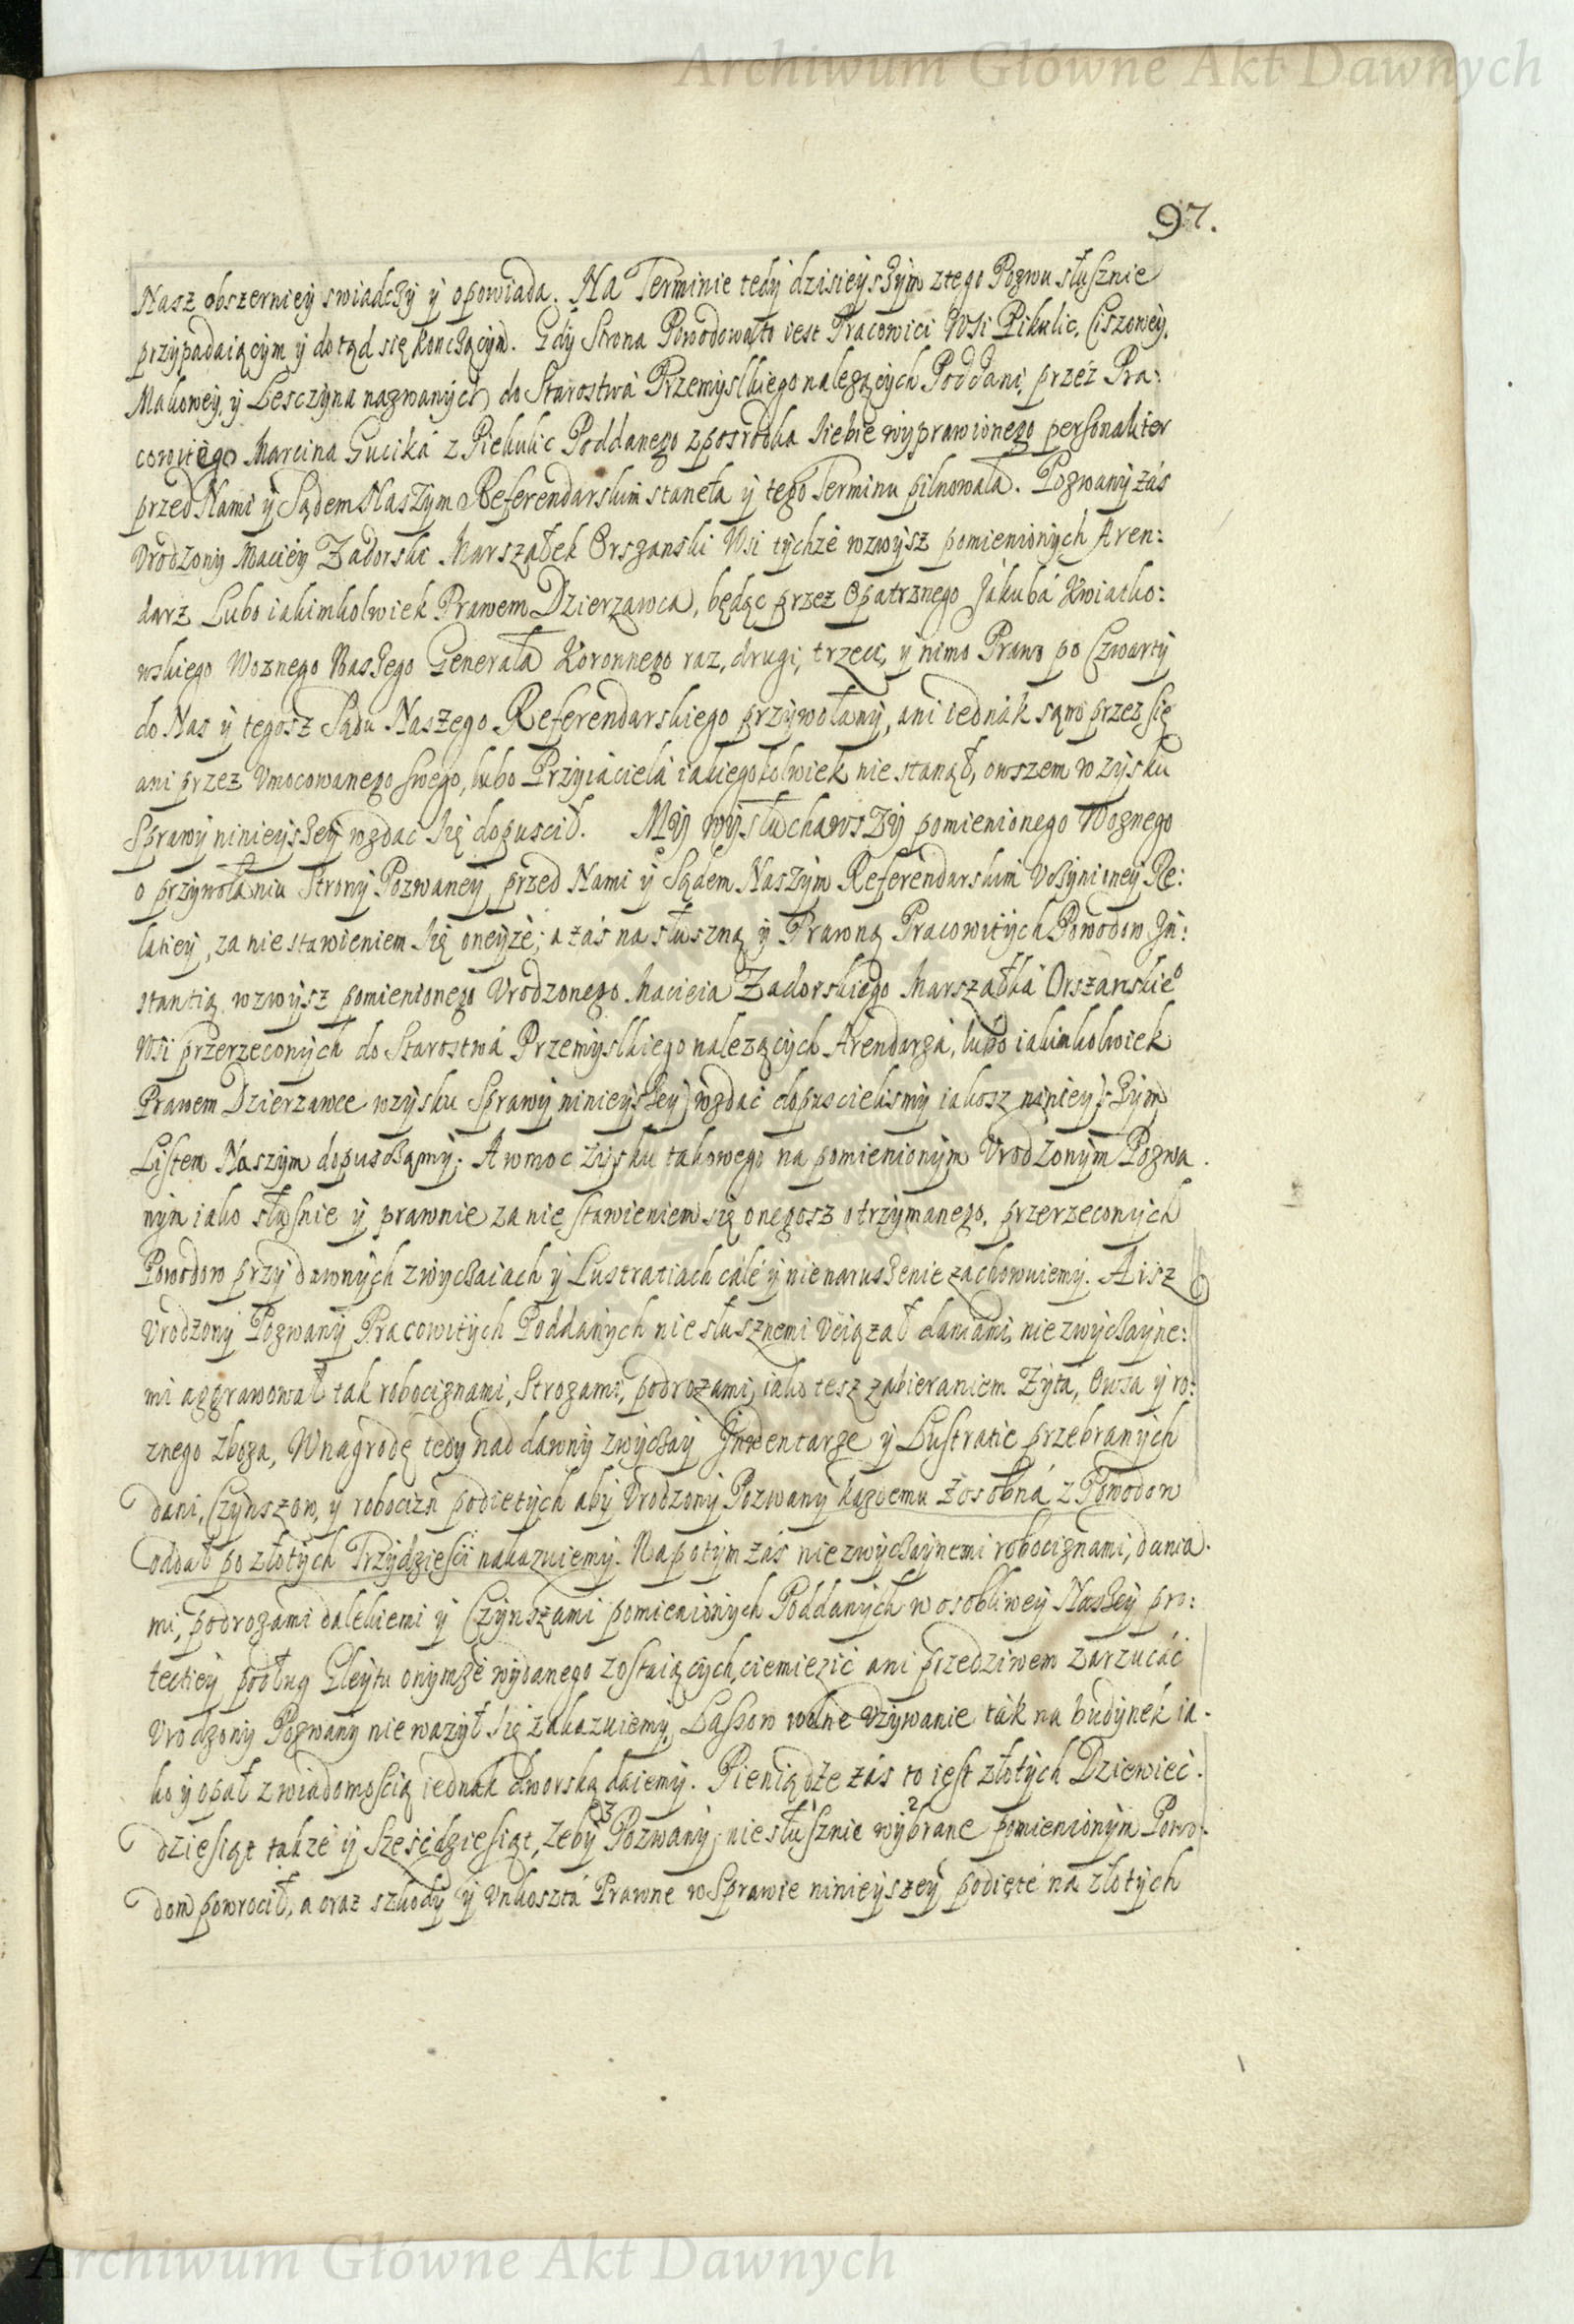 Archiwum Główne Akt Dawnych
97.
Nasz obszerniey swiadczy y opowiada. Na Terminie tedy dzisieyszym z tego Pozwu słusznie
przypadaiącym y dotąd się konczącym. Gdy Strona Powodowa to iest Pracowici Wsi Pikulic, Ciszowey,
Makowey, y Lesczyna nazwanych do Starostwa Przemyslkiego nalezących Poddani, przez Pra:
cowitego Marcina Gucika z Piekulic Poddanego zposrodka siebie wyprawionego personaliter
przed Nami y Sądem Naszym Referendarskim staneła y tego Terminu pilnowała. Pozwany zás
Vrodzony Maciey Zadorski Marszałek Orszanski Wsi tychze wzwysz pomienionych Aren:
darz Lubo iakimkolwiek Prawem Dzierzawca, będąc przez Opatrznego Jakuba Kwiatko:
wskiego Woznego Naszego Generała Koronnego raz, drugi, trzeci, y nimo Prawo po Czwarty
do Nas y tegosz Sądu Naszego Referendarskiego przywołany, ani iednak sąm przez się
ani przez Vmocowanego swego, lubo Przyiaciela iakiegokolwiek nie stanął, owszem w zysku
Sprawy ninieyszey wzdac się dopuscił. My wysłuchawszy pomienionego Woznego
o przywołaniu Strony Pozwaney przed Nami y Sądem Naszym Referendarskim Vczynioney Re:
latiey, za nie stawieniem się oneyze; a zás na słuszną y Prawną Pracowitych Powodow Jn:
stantią wzwysz pomienionego Vrodzonego Macieia Zadorskiego Marszałka Orszanskieo
Wsi przerzeconych do Starostwá Przemyslkiego nalezących Arendarza, lubo iakimkolwiek
Prawem Dzierzawce wzysku Sprawy ninieyszey wzdac dopuscielismy iakosz ninieyszym
Listem Naszym dopusczamy. A w moc zysku takowego na pomienionym Vrodzonym Pozwa.
nym iako słusnie y prawnie za nie stawieniem się onegosz otrzymanego, przerzeconych
Powodow przy dawnych zwyczaiach y Lustratiach cale y nienaruszenie zachowuiemy. A isz
Vrodzony Pozwany Pracowitych Poddanych nie słusznemi Vciązał daniami, niezwyczayne:
mi aggrawował tak robociznami, Strozami, podrozami, iako tesz zabieraniem Zyta, Owsa y ro:
znego zboza, W nagrodę tedy nad dawny zwyczay Jnwentarze y Lustratie przebranych
dani, Czynszow, y robocizn podietych aby Vrodzony Pozwany kazdemu zosobná z Powodow
oddał po złotych Trzydziesci nakazuiemy. Napotym zás niezwyczaynemi robociznami, dania.
mi, podrozami dalekiemi y Czynszami pomienionych Poddanych w osobliwey Naszey pro:
tectiey podług Gleytu onymze wydanego zostaiących, ciemiezic ani przedziwem zarzucáć
Vrodzony Pozwany nie wazył się zakazuiemy. Lassow wolne Vzywanie tak na budynek ia.
ko y opał z wiadomoscią iednak dworską daiemy. Pieniądze zás to iest złotych Dziewiec.
dziesiąt takze y Szesćdziesiąt, zeby Pozwany niesłusznie wybrane pomienionym Powo.
dom powrocił, a oraz szkody y Vnkosztá Prawne w Sprawie ninieyszey podięte na złotych
Archiwum Główne Akt Dawnych